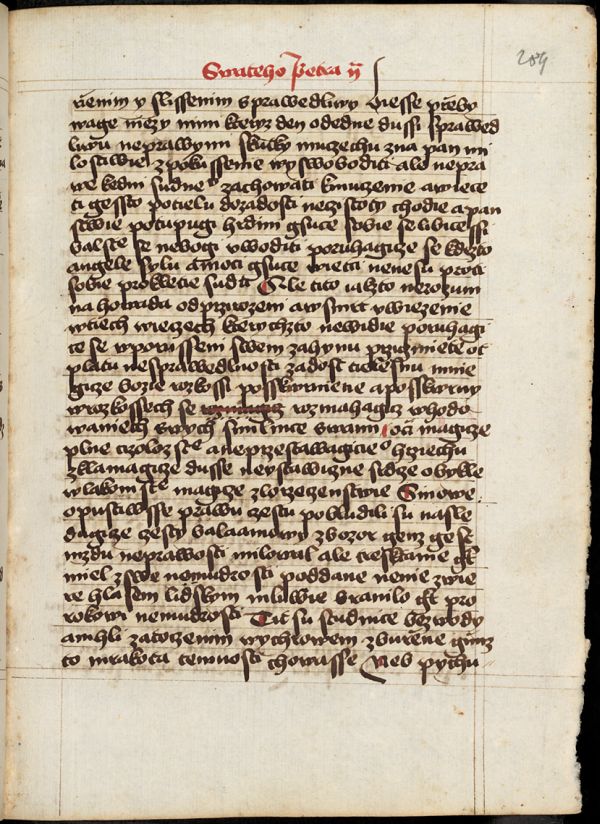 Swateho Petra ii
209
niemim y slissenim sprawedliwy biesse przieby
wage mezy nimi kterzz den ode dne dussi sprawed
liwu neprawymi skutky muczechu zna pan mi
lostiwe z pokussenie wyswoboditi ale nepra
we k dni sudne° zachowati k muczenie a wiece
ti gessto po tielu dozadosti neczistoty chodie a pan
stwie potupugi hrdini gsuce sobie se libiece ssi
balste se nebogi vwoditi poruhagicze se kdezto
angele sylu a moci gsuce wietci nenesu proti
sobie prokletie sud Ale tito iakzto nerozum
na howada od przirozenie a w smrt vwiezenie
w tiech wieczech kterychzto newidie poruhagi
ce se w porusseni swem zahynu przigmiete ot
platu nesprawedlnosti zadost tielesnu mnie
gicze bozie rozkossi posskwrniene a posskwrny
w rozkossech se rozmahagicz w hodo
waniech swych smilnice s wami oči magicze
plne czizolozste a neprzestawagicie° hrziechu
zklamagicze dusse neustawiczne srdce obykle
w lakomste magicze zlorzeczenstwie Synowe
opustiwsse prawu cestu pobludili su nasle
dugicze cesty balaamowy z bozor genz ge se
mzdu neprawosti milowal ale tresktanie gt
miel z swe nemudrosti poddane niemie zwie
rze hlasem lidskym mluwie branilo gt pro
rokowi nemudrosti Tit su studnice bez wody
a mhli zatoczenim wychrowem zburzene gimz
to mrakota temnosti chowasse Neb pychu